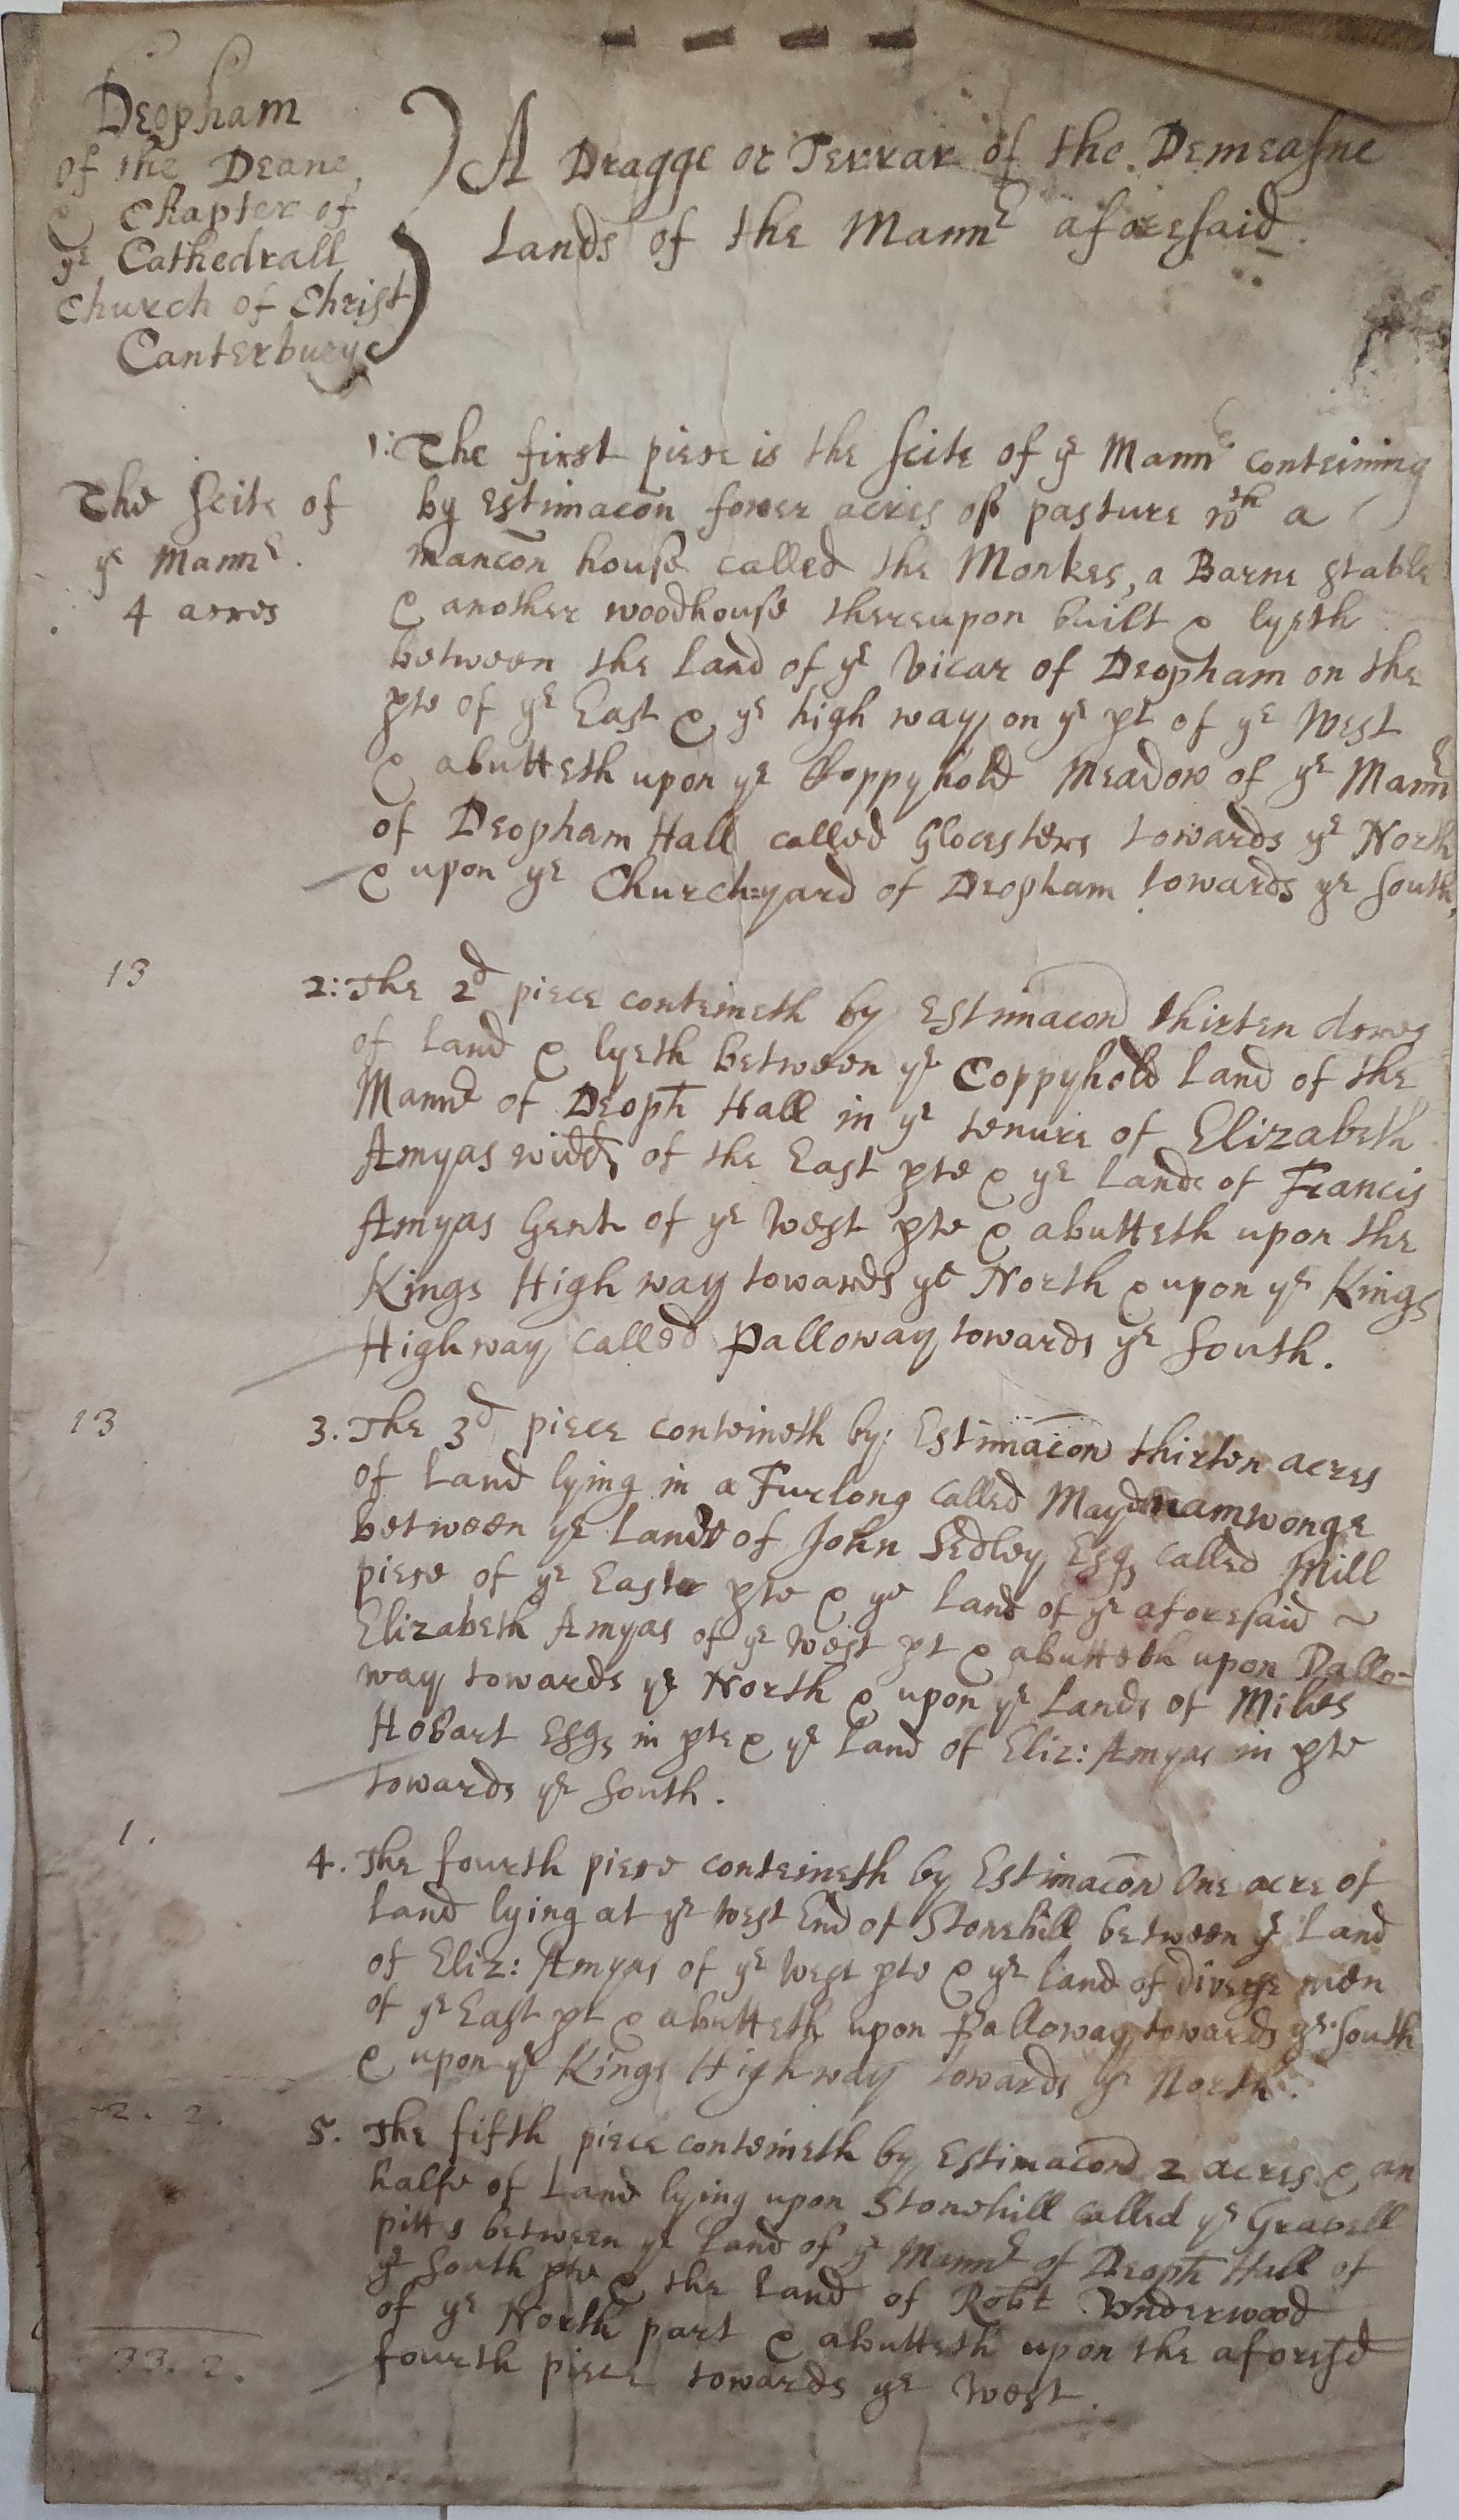 Deopham
of the Deane
& Chapter of
ye Cathedrall
Church of Christ
Canterburye
A Dragge or Terrar of the Demeasne
Lands of the Mannr aforesaid
The Scite of
ye Mannr.
4 acres
1: The first piece is the scite of ye Mannr conteining
by Estimacon fower acres of pasture wth a
mancon house called the Monkes, a Barne stable
& another woodhouse thereupon built & lyeth
between the land of ye Vicar of Deopham on the
pte of ye East & ye high way on ye pt of ye West
& abutteth upon ye Coppyhold Meadow of ye Mannr
of Deopham Hall called Glocesters towards ye North
& upon ye Church=yard of Deopham towards ye South,
13
2: The 2d piece conteineth by Estimacon thirten Acres
of land & lyeth between ye Coppyhold Land of the
Mannr of Deoph Hall in ye tenure of Elizabeth
Amyas widd, of the East pte & ye Lands of Francis
Amyas Gent of ye West pte & abutteth upon the
Kings High way towards ye North & upon ye Kings
High way called Palloway towards ye South.
13
3. The 3d piece conteineth by Estimacon thirten acres
of Land lying in a Furlong called Maydnamwonge
between ye Lands of John Sedley Esq, called Mill
piece of ye East pte & ye land of ye aforesaid ~
Elizabeth Amyas of ye West pt & abutteth upon Pallo-
way towards ye North & upon ye Lands of Miles
Hobart Esq, in pte & ye Land of Eliz: Amyas in pte
towards ye South.
1.
4. The fourth piece conteineth by Estimacon One acre of
Land lying at ye West End of Stonehill between ye Land
of Eliz: Amyas of ye West pte & ye land of diverse men
of ye East pt & abutteth upon Palloway towards ye South
& upon ye Kings Highway towards ye North.
2. 2.
5. The fifth piece conteineth by Estimacon 2 acres & an
halfe of Land lying upon Stonehill called ye Gravell
pitts between ye Land of ye Mannr of Deoph Hall of
ye South pte & the Land of Robt Underwood
of ye North part & abutteth upon the aforesd
fourth piece towards ye West.
33. 2.